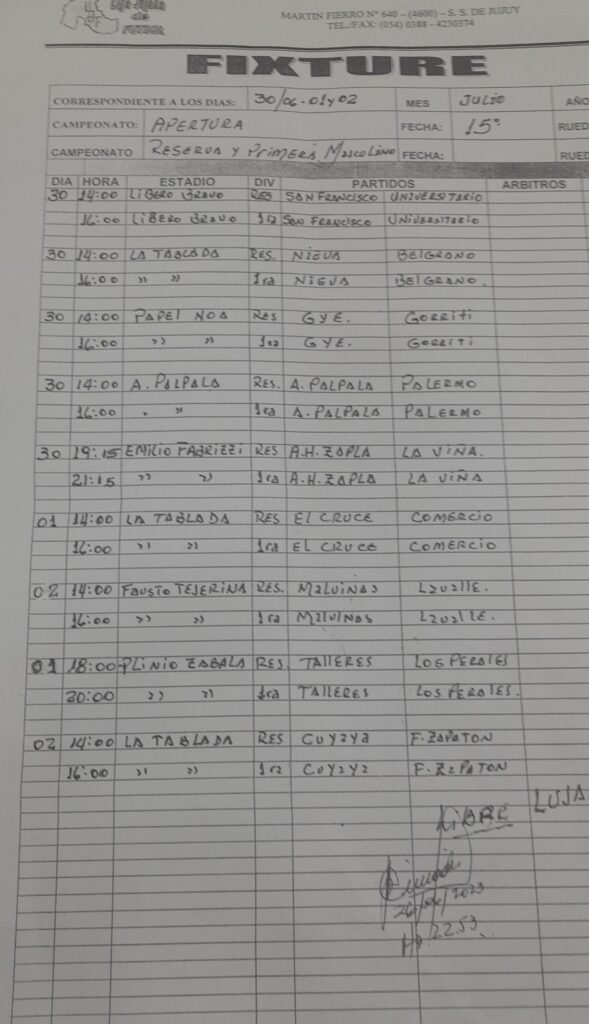 Liga Jujeña
de
FUTBOL
MARTIN FIERRO Nº 640 – (4600) – S. S. DE JUJUY
TEL./FAX: (054) 0388 - 4230374
FIXTURE
CORRESPONDIENTE A LOS DIAS: 30/06-01 y 02 MES JULIO AÑO
CAMPEONATO: APERTURA FECHA: 15° RUED
CAMPEONATO RESERVA y PrimerA MascoLino FECHA: RUED
DIA HORA ESTADIO DIV PARTIDOS ARBITROS
30 14:00 LIBERO BRAVO RES SAN FRANCISCO UNIVERSITARIO
16:00 LIBERO BRAVO 1ra SAN FRANCISCO UNIVERSITARIO
30 14:00 LA TABLADA RES. NIEVA BELGRANO
16:00 " " 1ra NIEVA BELGRANO.
30 14:00 PAPEL NOA RES GYE. GORRITI
16:00 " " 1ra GYE. GORRITI
30 14:00 A. PALPALA RES. A. PALPALA PALERMO
16:00 . " 1ra A. PALPALA PALERMO
30 19:15 EMILIO FABRIZZI RES A.H. ZAPLA LA VIÑA.
21:15 " " 1ra A.H. ZAPLA LA VIÑA
01 14:00 LA TABLADA RES EL CRUCE COMERCIO
16:00 " " 1ra EL CRUCE COMERCIO
02 14:00 FAUSTO TEJERINA RES. MALVINAS LAVALLE.
16:00 " " 1ra MALVINAS LAVALLE.
01 18:00 PLINIO ZABALA RES. TALLERES LOS PERALES
20:00 " " 1ra TALLERES LOS PERALES.
02 14:00 LA TABLADA RES CUYAYA F. ZAPATON
16:00 " " 1ra CUYAYA F. ZAPATON
LIBRE LUJA
26/06/2023
Hs 22.53